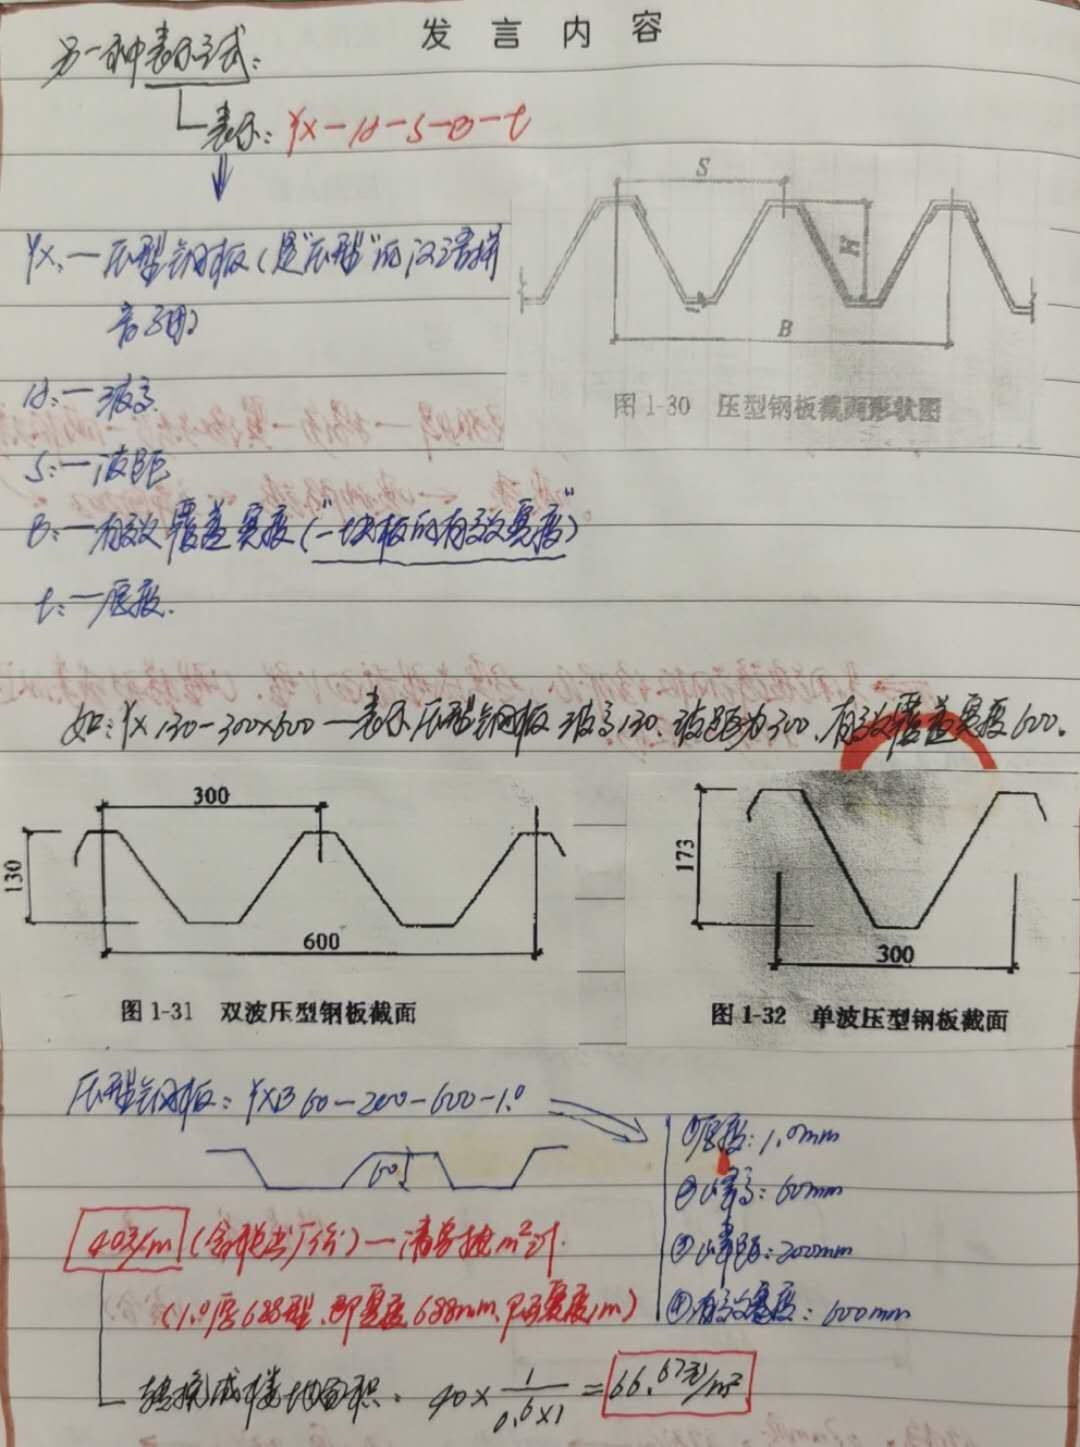 发言内容
另一种表示方式：
表示：YX-H-S-B-t
S
YX:一压型钢板(是"压型"的汉语拼
音字母)
H
B
图 1-30 压型钢板截面形状图
H:一波高.
S:一波距
B:一有效覆盖宽度("一块板的有效宽度")
t:一厚度.
如:YX 130-300×600一表示压型钢板 波高130.波距为300.有效覆盖宽度600.
300
130
600
图 1-31 双波压型钢板截面
173
300
图 1-32 单波压型钢板截面
压型钢板：YXB 60-200-600-1.0
①厚度：1.0mm
60
②峰高：60mm
40元/m (含税出厂价)一清单按m²计.
③峰距：200mm
(1.0厚688型.即宽度688mm, 
④有效宽度：600mm
转换成楼地面积. 40×1/0.6×1=66.67元/m²